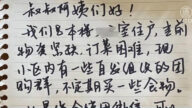 叔叔阿姨们好!
我们是本楼 室住户,当前
物资紧缺,订菜困难,现
小区内有一些自发组织的团
购群,不定期买一些食物。